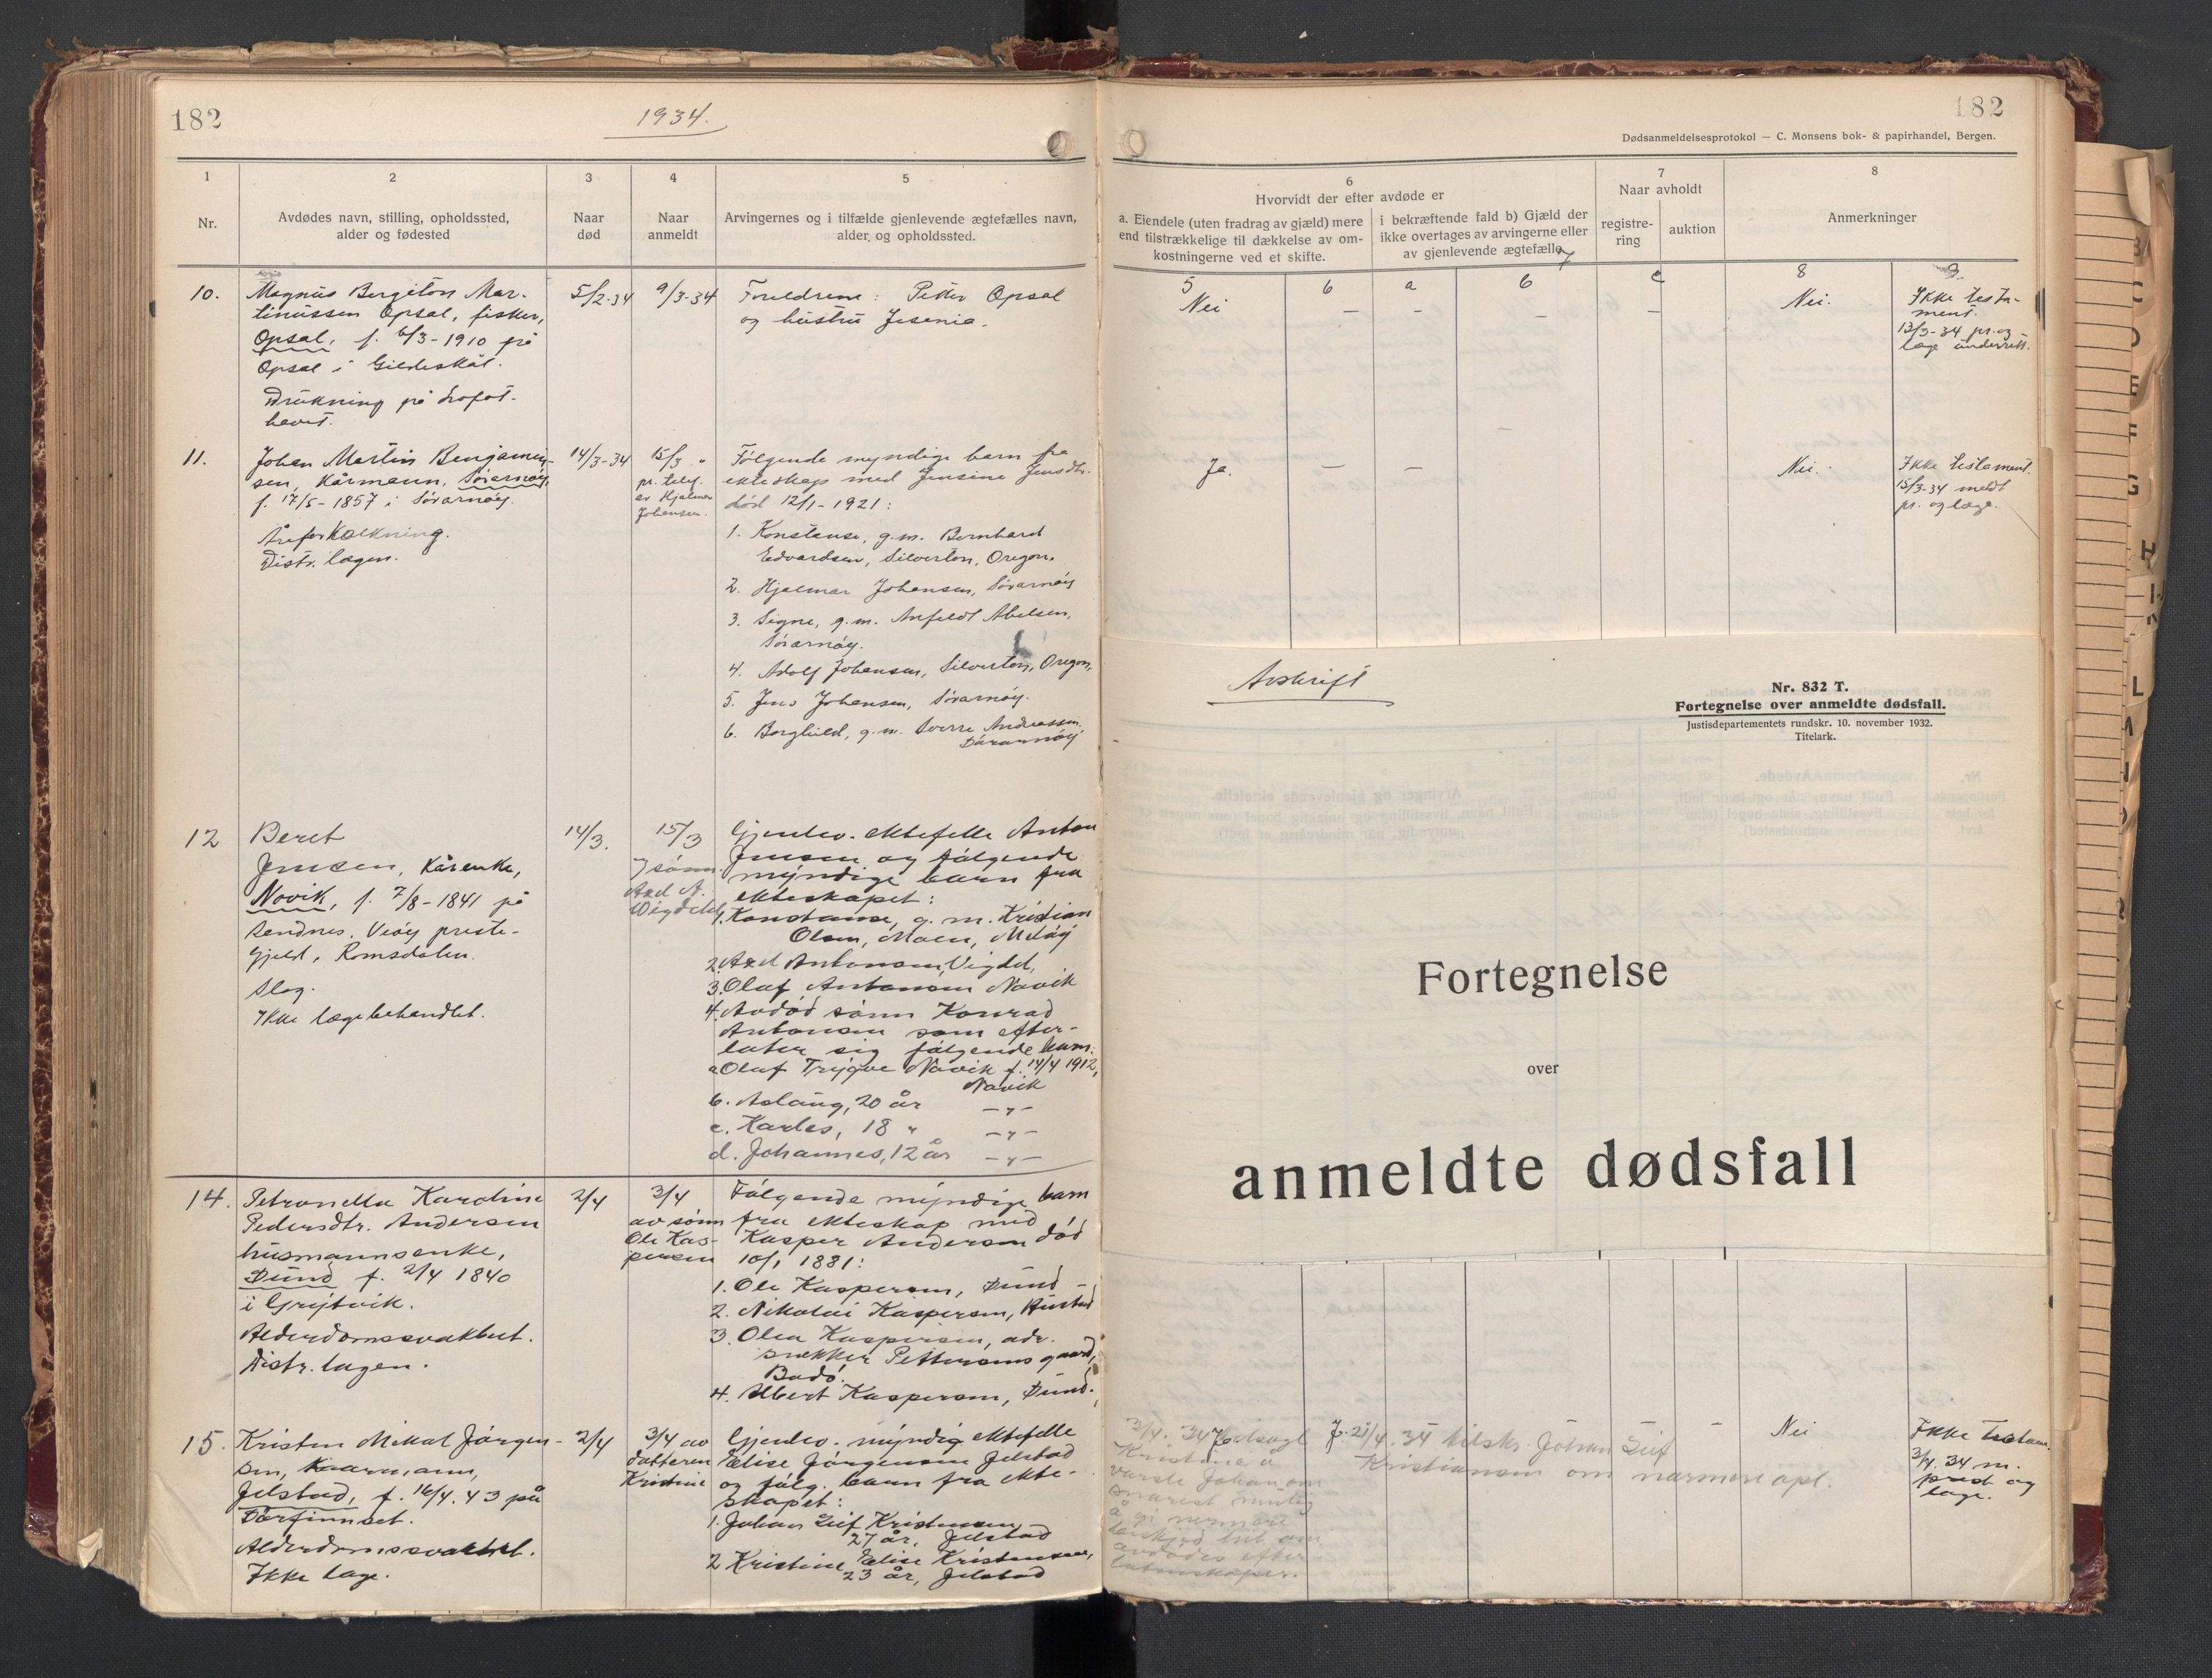 182
1934.
1
2
3
4
5
Nr.
Avdødes navn, stilling, opholdssted,
alder og fødested
Naar
død
Naar
anmeldt
Arvingernes og i tilfælde gjenlevende ægtefælles navn,
alder og opholdssted.
10.
Magnus Bergiton Mar-
tinussen Opsal, fisker,
Opsal, f. 6/3-1910 på
Opsal i Gildeskål.
Drukning på Lofot-
havet.
5/2-34
9/3-34
Foreldrene: Petter Opsal
og hustru Jesenia.
11.
Johan Martin Benjamin-
sen, Kårmann, Sørarnøy,
f. 17/5-1857 i Sørarnøy.
Åreforkalkning.
Distr. lægen.
14/3-34
15/3 "
pr. telef.
av Hjalmar
Johansen.
Følgende myndige barn fra
ekteskap med Jensine Jensdtr.
død 12/1-1921:
1. Konstanse, g.m. Bernhard
Edvardsen, Silverton, Oregon.
2. Hjalmar Johansen, Sørarnøy
3. Signe, g.m. Arnfeldt Abelsen,
Sørarnøy.
4. Adolf Johansen, Silverton, Oregon,
5. Jens Johansen, Sørarnøy.
6. Borghild, g.m. Sverre Andreassen.
Sørarnøy
12
Beret
Jensen, Kårenke,
Novik, f. 7/8-1841 på
Sendnes, Veøy preste-
gjeld, Romsdalen.
Slag.
Ikke lægebehandlet.
14/3.
15/3
sønn
Axel A.
Vigdel
Gjenlev. ektefelle Anton
Jensen og følgende
myndige barn fra
ekteskapet:
1. Konstanse, g. m. Kristian
Olsen, Moen, Meløy
2. Axel Antonsen, Vigdel,
3. Olaf Antonsen Novik
4. Avdød sønn Konrad
Antonsen som efter-
later sig følgende barn:
a Olaf Trygve Novik f. 14/4 1912,
Novik
b. Aslaug, 20 år -"-
c. Karles, 18 " -"-
d. Johannes, 12 år -"-
14.
Petronella Karoline
Pedersdtr. Andersen
husmannsenke,
Sund f. 2/4 1840
i Grytvik.
Alderdomssvakhet.
Distr. lægen.
2/4
3/4
av sønn
Ole Kas-
persen
Følgende myndige barn
fra ekteskap med
Kasper Andersen død
10/1 1881:
1. Ole Kaspersen, Sund -
2. Nikolai Kaspersen, Hustad
3. Olea Kaspersen, adr.
snekker Pettersens gaard,
Bodø.
4. Albert Kaspersen, Sund.
15.
Kristen Mikal Jørgen-
sen, Kaarmann,
Jelstad, f. 16/4. 43 på
Torfinnset.
Alderdomssvakhet.
Ikke læge.
2/4
3/4 av
datteren
Kristine
Gjenlev. myndig ektefelle
Elise Jørgensen Jelstad
og følg. barn fra ekte-
skapet:
1. Johan Leif Kristensen
27 år, Jelstad
2 Kristine Elise Kristensen,
23 år, Jelstad
182
Dødsanmeldelsesprotokol — C. Monsens bok- & papirhandel, Bergen.
6
Hvorvidt der efter avdøde er
a. Eiendele (uten fradrag av gjæld) mere
end tilstrækkelige til dækkelse av om-
kostningerne ved et skifte.
i bekræftende fald b) Gjæld der
ikke overtages av arvingerne eller
av gjenlevende ægtefælle
7
Naar avholdt
registre-
ring
auktion
8
Anmerkninger
5
6
a
b
c
7
8
9.
Nei
—
—
—
—
Nei.
Ikke testa-
ment.
13/3-34 pr. og
læge underrett.
Ja.
—
—
Nei.
Ikke testament.
15/3-34 meldt
pr. og læge.
Avskrift
Nr. 832 T.
Fortegnelse over anmeldte dødsfall.
Justisdepartementets rundskr. 10. november 1932.
Titelark.
Fortegnelse
over
anmeldte dødsfall
3/4. 34 tilsagt
Kristine å
varsle Johan om
snarest mulig
å gi nærmere
beskjed hit om
avdødes efter-
latenskaper.
J. 21/4. 34 tilskr. Johan Leif
Kristiansen om nærmere opl.
Nei
Ikke testam.
3/4. 34 m.
prest og
læge.
B
C
D
E
F
G
H
I
K
L